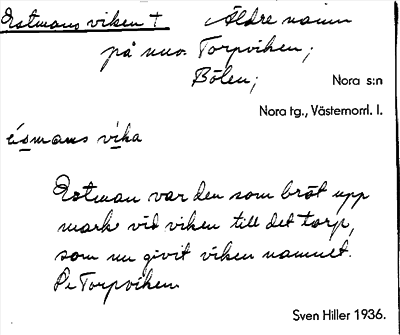 Estmans viken † Äldre namn
på nuv. Torpviken;
Bölen; Nora s:n
Nora tg., Västernorrl. l.
ésmans vika
Estman var den som bröt upp
mark vid viken till det torp,
som nu givit viken namnet.
Torpviken
Sven Hiller 1936.